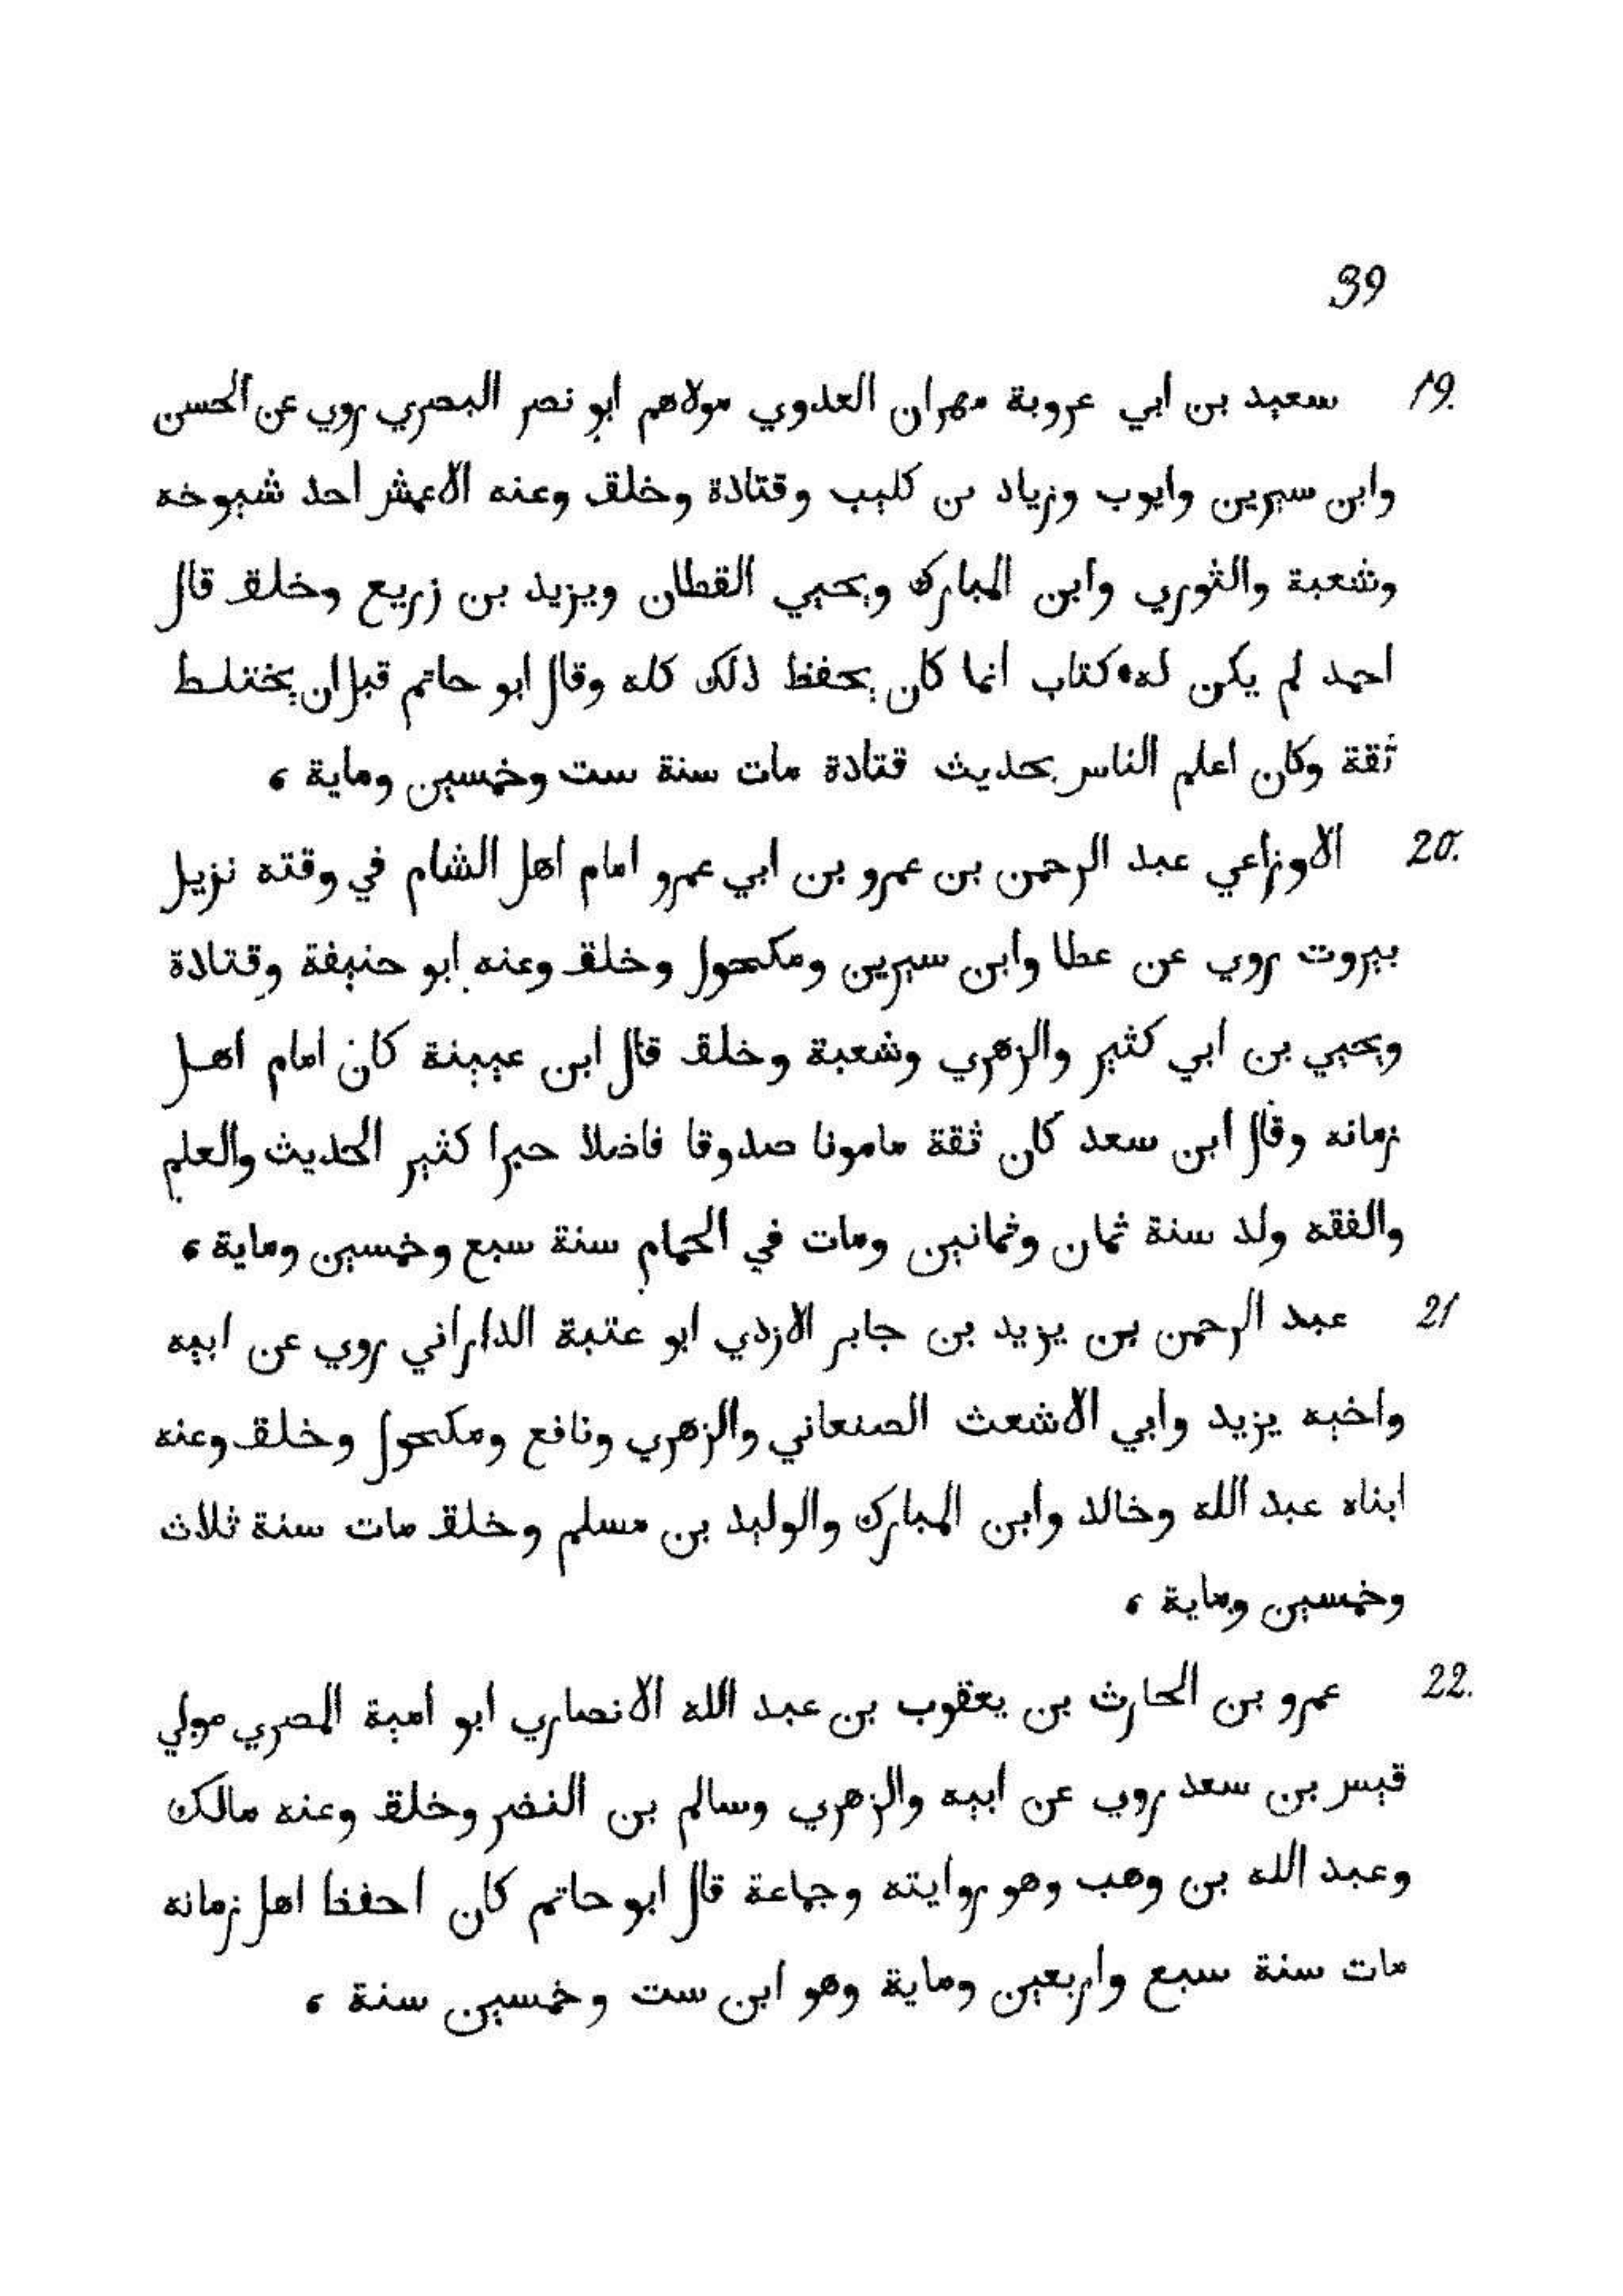 39
19. سعيد بن ابي عروبة مهران العدوي مولاهم ابو نصر البصري روي عن الحسن
وابن سيرين وايوب وزياد بن كليب وقتادة وخلق وعنه الاعمش احد شيوخه
وشعبة والثوري وابن المبارك ويحيي القطان ويزيد بن زريع وخلق قال
احمد لم يكن له كتاب انما كان يحفظ ذلك كله وقال ابو حاتم قبل ان يختلط
ثقة وكان اعلم الناس بحديث قتادة مات سنة ست وخمسين وماية ،
20. الاوزاعي عبد الرحمن بن عمرو بن ابي عمرو امام اهل الشام في وقته نزيل
بيروت روي عن عطا وابن سيرين ومكحول وخلق وعنه ابو حنيفة وقتادة
ويحيي بن ابي كثير والزهري وشعبة وخلق قال ابن عيينة كان امام اهل
زمانه وقال ابن سعد كان ثقة مامونا صدوقا فاضلا حبرا كثير الحديث والعلم
والفقه ولد سنة ثمان وثمانين ومات في الحمام سنة سبع وخمسين وماية ،
21 عبد الرحمن بن يزيد بن جابر الازدي ابو عتبة الداراني روي عن ابيه
واخيه يزيد وابي الاشعث الصنعاني والزهري ونافع ومكحول وخلق وعنه
ابناه عبد الله وخالد وابن المبارك والوليد بن مسلم وخلق مات سنة ثلاث
وخمسين وماية ،
22. عمرو بن الحارث بن يعقوب بن عبد الله الانصاري ابو امية المصري مولي
قيس بن سعد روي عن ابيه والزهري وسالم بن النضر وخلق وعنه مالك
وعبد الله بن وهب وهو روايته وجماعة قال ابو حاتم كان احفظ اهل زمانه
مات سنة سبع واربعين وماية وهو ابن ست وخمسين سنة ،